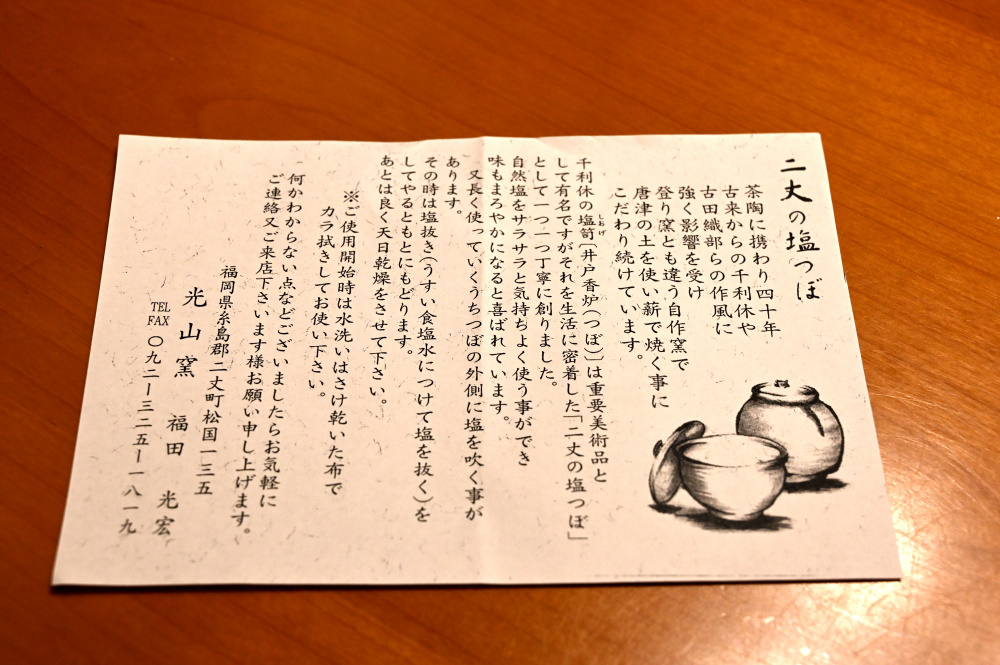 二丈の塩つぼ
茶陶に携わり四十年
古来からの千利休や
古田織部らの作風に
強く影響を受け
登り窯とも違う自作窯で
唐津の土を使い薪で焼く事に
こだわり続けています。
千利休の塩笥〔井戸香炉(つぼ)〕は重要美術品と
しおげ
して有名ですがそれを生活に密着した「二丈の塩つぼ」
として一つ一つ丁寧に創りました。
自然塩をサラサラと気持ちよく使う事ができ
味もまろやかになると喜ばれています。
又長く使っていくうちつぼの外側に塩を吹く事が
あります。
その時は塩抜き(うすい食塩水につけて塩を抜く)を
してやるともとにもどります。
あとは良く天日乾燥をさせて下さい。
※ご使用開始時は水洗いはさけ乾いた布で
カラ拭きしてお使い下さい。
何かわからない点などございましたらお気軽に
ご連絡又ご来店下さいます様お願い申し上げます。
福岡県糸島郡二丈町松国一三五
光山窯 福田 光宏
TEL
FAX 〇九二ー三二五ー一八一九